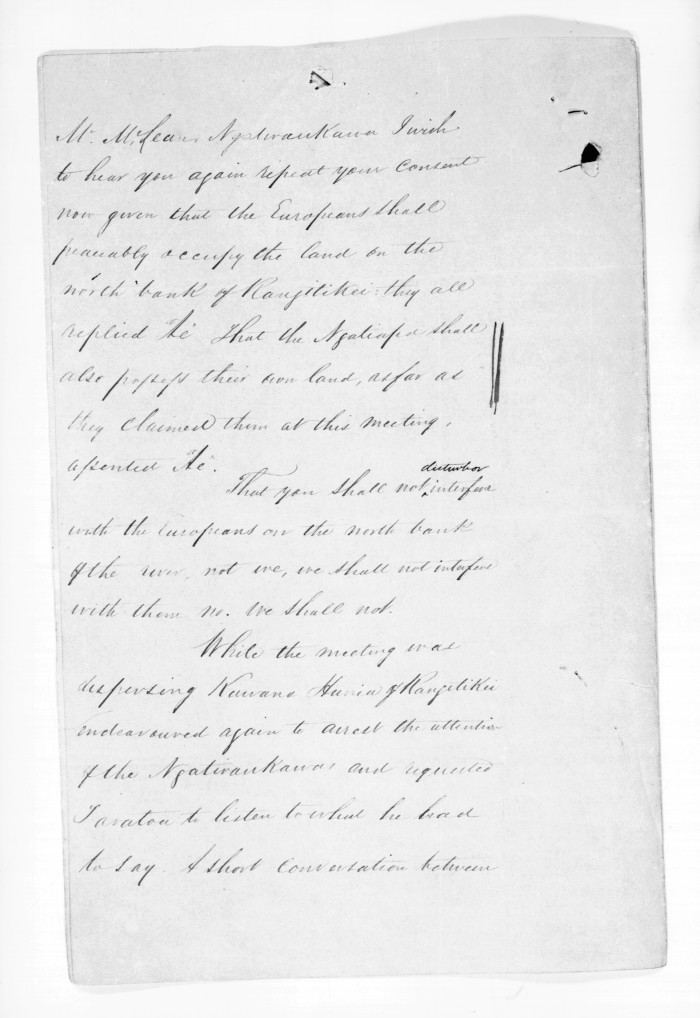 7.
Mr. McLean, Ngatiraukawa I wish
to hear you again repeat your consent
now given that the Europeans shall
peaceably occupy the land on the
north bank of Rangitikei: they all
replied "Ae" That the Ngatiapa shall
also possess their own land, as far as
they claimed them at this meeting,
assented "Ae".
That you shall not disturb or interfere
with the Europeans on the north bank
of the river, not we, we shall not interfere
with them no. We shall not.
While the meeting was
dispersing Kawana Hunia of Rangitikei
endeavoured again to arrest the attention
of the Ngatiraukawas and requested
Taratoa to listen to what he had
to say. A short conversation between